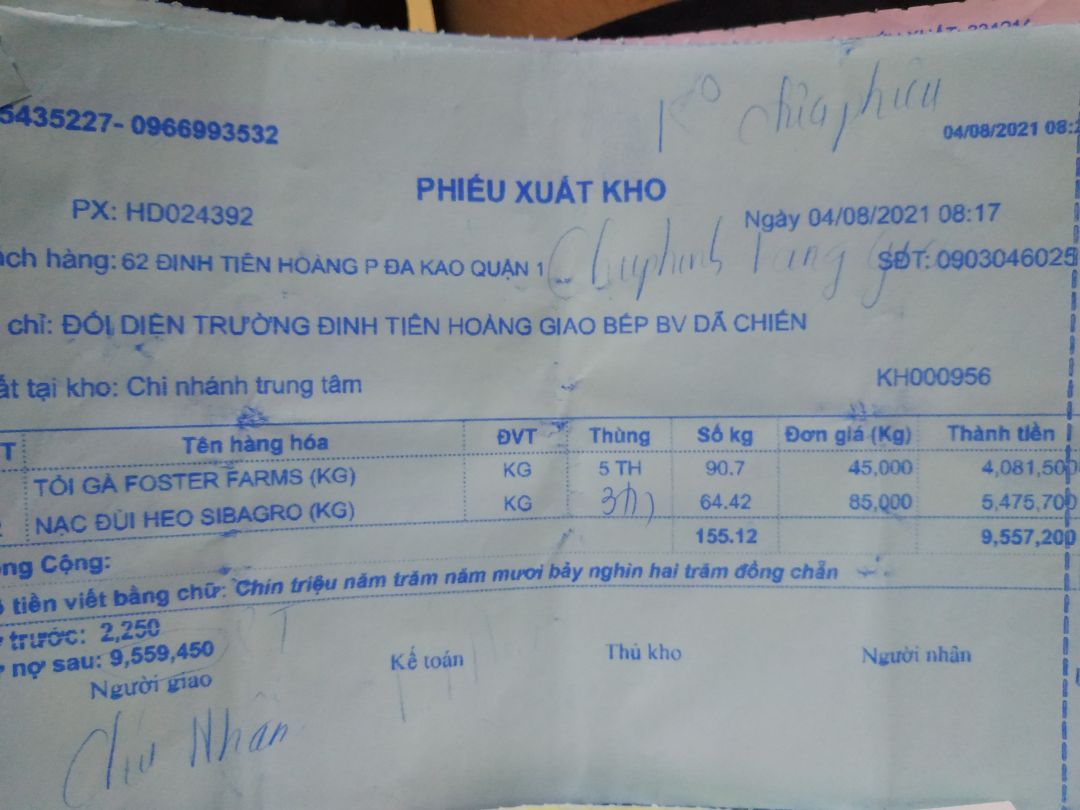 5435227- 0966993532
04/08/2021 08:2
PHIẾU XUẤT KHO
PX: HD024392
Ngày 04/08/2021 08:17
ách hàng: 62 ĐINH TIÊN HOÀNG P ĐA KAO QUẬN 1
SĐT: 0903046025
chỉ: ĐỐI DIỆN TRƯỜNG ĐINH TIÊN HOÀNG GIAO BẾP BV DÃ CHIẾN
ất tại kho: Chi nhánh trung tâm
KH000956
T Tên hàng hóa ĐVT Thùng Số kg Đơn giá (Kg) Thành tiền
TỎI GÀ FOSTER FARMS (KG) KG 5 TH 90.7 45,000 4,081,500
NẠC ĐÙI HEO SIBAGRO (KG) KG 3TH 64.42 85,000 5,475,700
155.12 9,557,200
ng Cộng:
ố tiền viết bằng chữ: Chín triệu năm trăm năm mươi bảy nghìn hai trăm đồng chẵn
ợ trước: 2,250
ợ nợ sau: 9,559,450
Người giao Kế toán Thủ kho Người nhận
Nhân